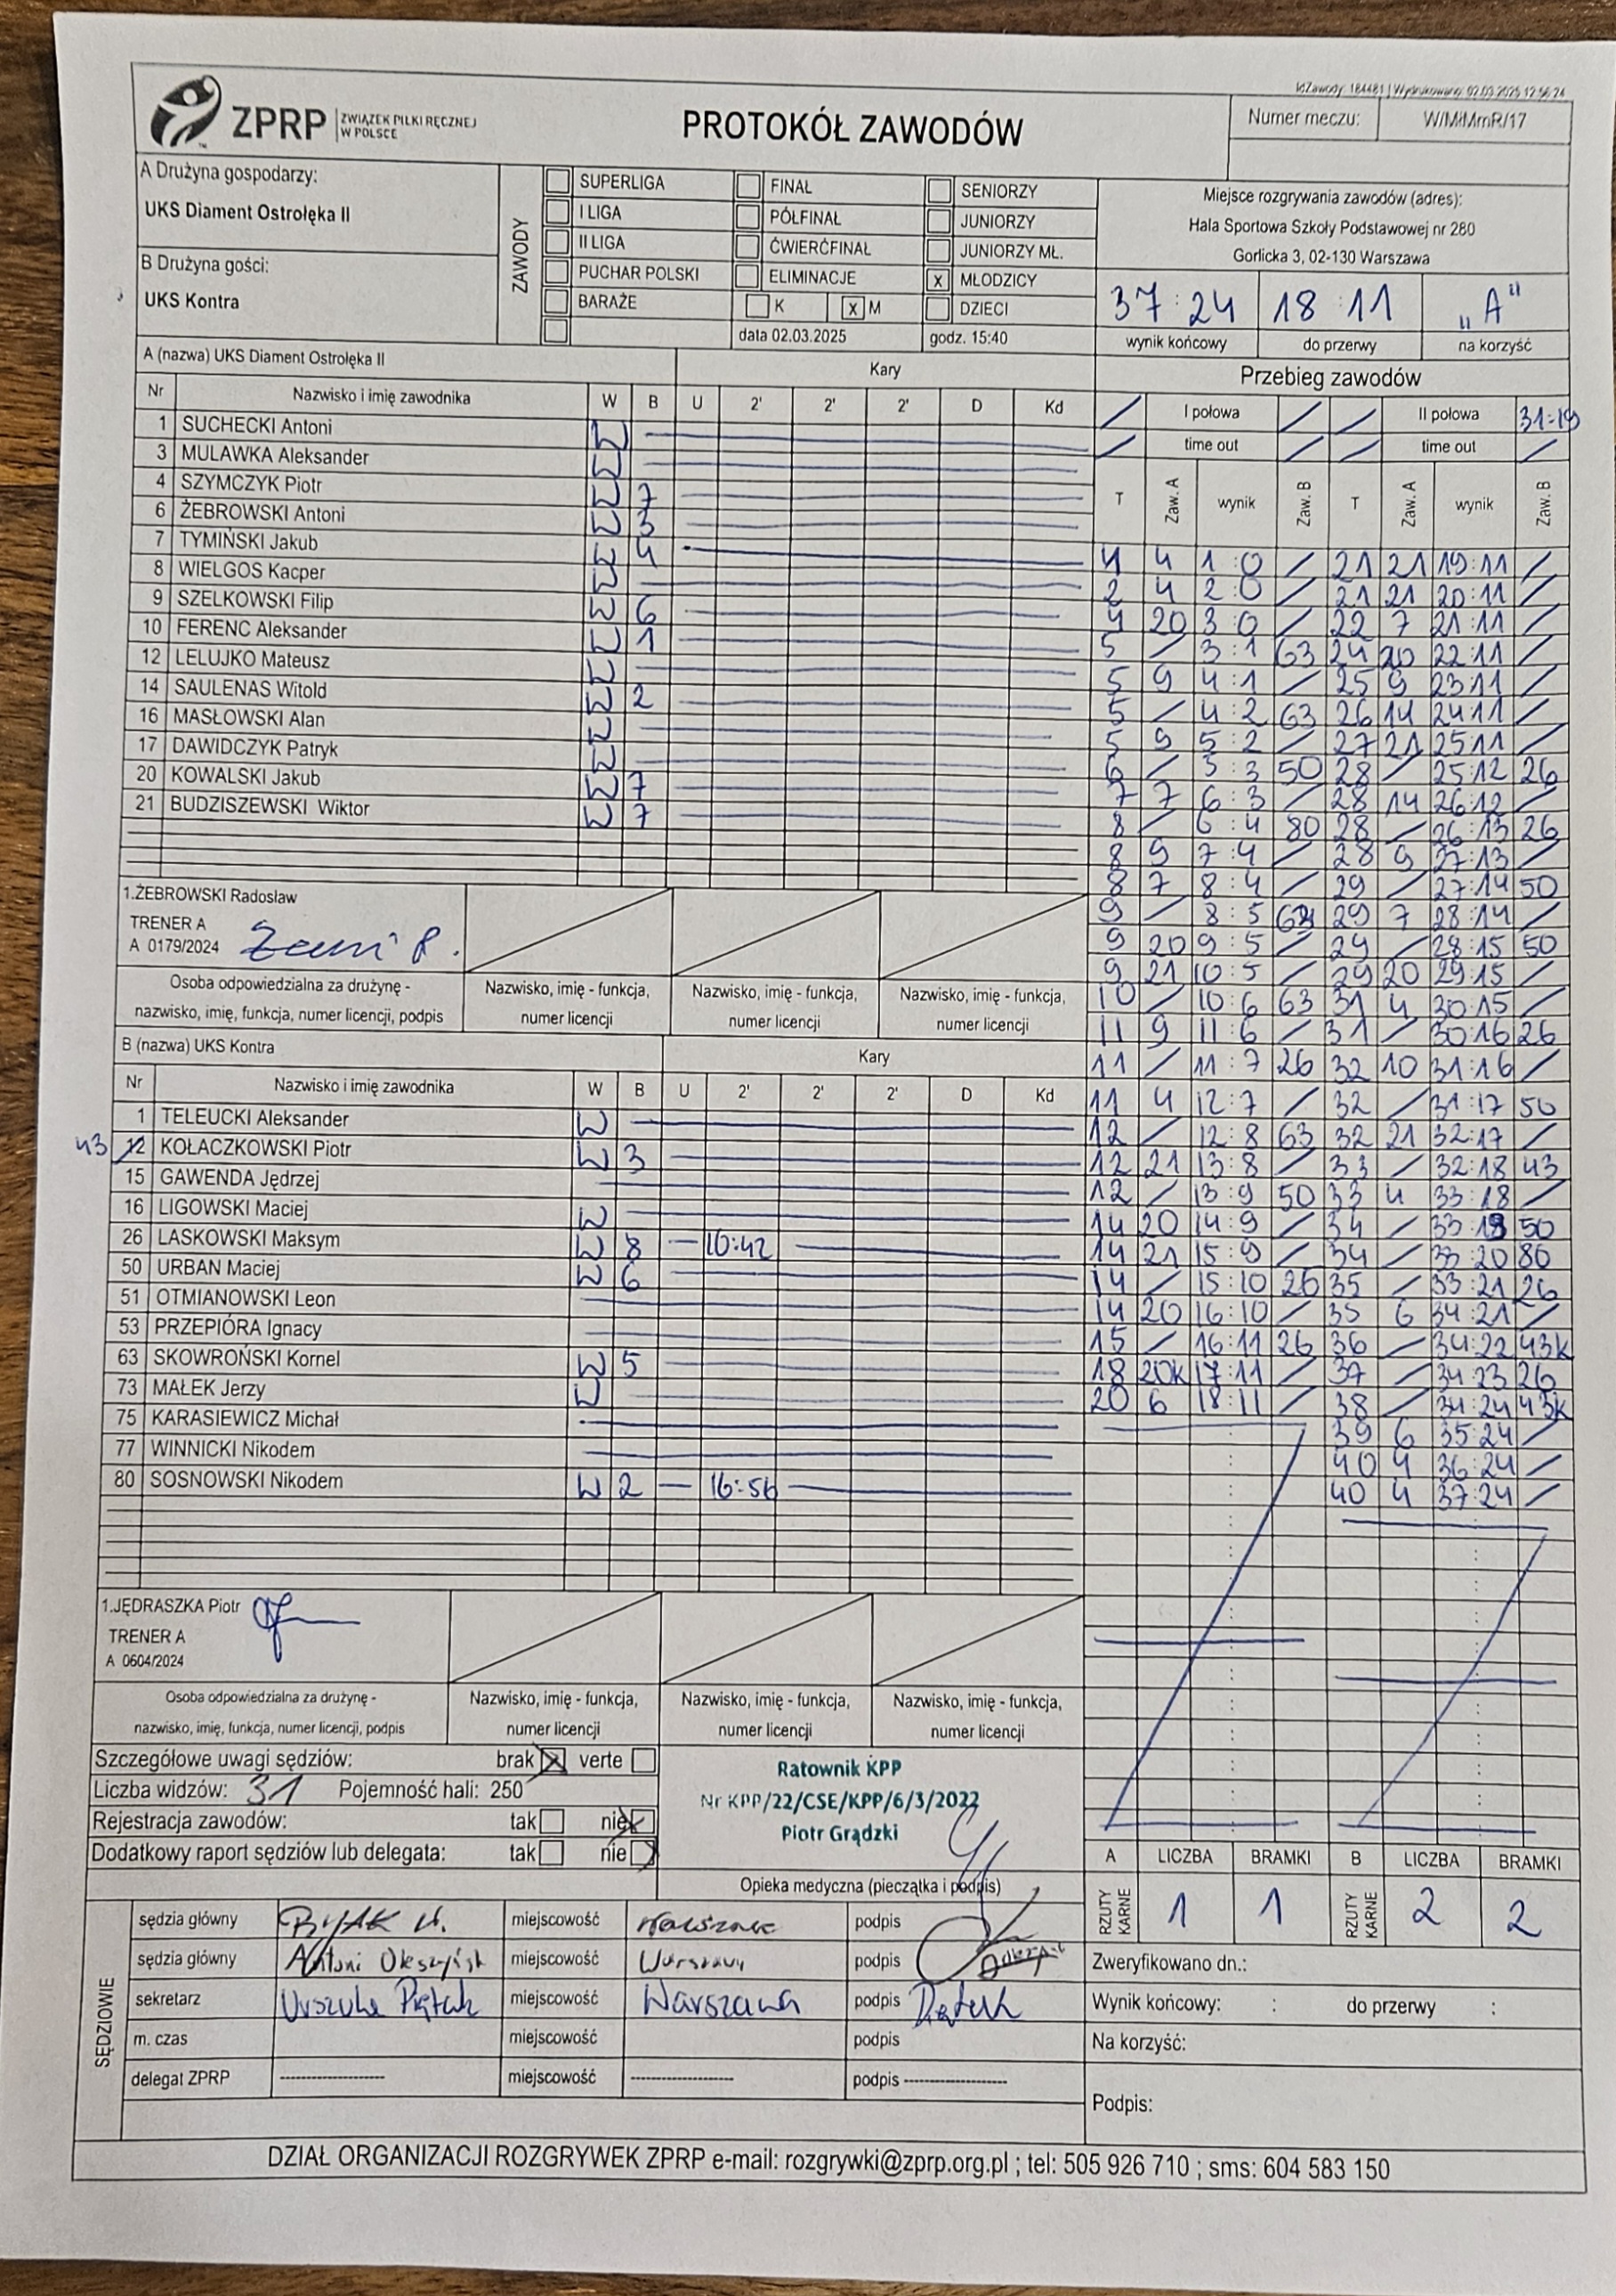 IdZawody: 184481 | Wydrukowano: 02.03.2025 12:56:24
ZPRP ZWIĄZEK PIŁKI RĘCZNEJ W POLSCE
PROTOKÓŁ ZAWODÓW
Numer meczu: W/MłMmR/17
A Drużyna gospodarzy:
UKS Diament Ostrołęka II
B Drużyna gości:
UKS Kontra
ZAWODY
SUPERLIGA FINAŁ SENIORZY
I LIGA PÓŁFINAŁ JUNIORZY
II LIGA ĆWIERĆFINAŁ JUNIORZY MŁ.
PUCHAR POLSKI ELIMINACJE x MŁODZICY
BARAŻE K x M DZIECI
data 02.03.2025 godz. 15:40
Miejsce rozgrywania zawodów (adres):
Hala Sportowa Szkoły Podstawowej nr 280
Gorlicka 3, 02-130 Warszawa
37:24 18:11 „A"
wynik końcowy do przerwy na korzyść
A (nazwa) UKS Diament Ostrołęka II Kary
Nr Nazwisko i imię zawodnika W B U 2' 2' 2' D Kd
1 SUCHECKI Antoni W
3 MULAWKA Aleksander W
4 SZYMCZYK Piotr W 7
6 ŻEBROWSKI Antoni W 3
7 TYMIŃSKI Jakub W 4
8 WIELGOS Kacper W
9 SZELKOWSKI Filip W 6
10 FERENC Aleksander W 1
12 LELUJKO Mateusz W
14 SAULENAS Witold W 2
16 MASŁOWSKI Alan W
17 DAWIDCZYK Patryk W
20 KOWALSKI Jakub W 7
21 BUDZISZEWSKI Wiktor W 7
1.ŻEBROWSKI Radosław
TRENER A
A 0179/2024
Osoba odpowiedzialna za drużynę -
nazwisko, imię, funkcja, numer licencji, podpis
Nazwisko, imię - funkcja, numer licencji
Nazwisko, imię - funkcja, numer licencji
Nazwisko, imię - funkcja, numer licencji
B (nazwa) UKS Kontra Kary
Nr Nazwisko i imię zawodnika W B U 2' 2' 2' D Kd
1 TELEUCKI Aleksander W
43 12 KOŁACZKOWSKI Piotr W 3
15 GAWENDA Jędrzej
16 LIGOWSKI Maciej W
26 LASKOWSKI Maksym W 8 — 10:42
50 URBAN Maciej W 6
51 OTMIANOWSKI Leon
53 PRZEPIÓRA Ignacy
63 SKOWROŃSKI Kornel W 5
73 MAŁEK Jerzy W
75 KARASIEWICZ Michał
77 WINNICKI Nikodem
80 SOSNOWSKI Nikodem W 2 — 16:56
1.JĘDRASZKA Piotr
TRENER A
A 0604/2024
Osoba odpowiedzialna za drużynę -
nazwisko, imię, funkcja, numer licencji, podpis
Nazwisko, imię - funkcja, numer licencji
Nazwisko, imię - funkcja, numer licencji
Nazwisko, imię - funkcja, numer licencji
Przebieg zawodów
/ I połowa / / II połowa 31-19
/ time out / / time out /
T Zaw. A wynik Zaw. B T Zaw. A wynik Zaw. B
4 4 1:0 / 21 21 19:11 /
2 4 2:0 / 21 21 20:11 /
4 20 3:0 / 22 7 21:11 /
5 / 3:1 63 24 20 22:11 /
5 9 4:1 / 25 9 23:11 /
5 / 4:2 63 26 14 24:11 /
5 9 5:2 / 27 21 25:11 /
6 / 5:3 50 28 / 25:12 26
7 7 6:3 / 28 14 26:12 /
8 / 6:4 80 28 / 26:13 26
8 9 7:4 / 28 9 27:13 /
8 7 8:4 / 29 / 27:14 50
9 / 8:5 63 29 7 28:14 /
9 20 9:5 / 29 / 28:15 50
9 21 10:5 / 29 20 29:15 /
10 / 10:6 63 31 4 30:15 /
11 9 11:6 / 31 / 30:16 26
11 / 11:7 26 32 10 31:16 /
11 4 12:7 / 32 / 31:17 50
12 / 12:8 63 32 21 32:17 /
12 21 13:8 / 33 / 32:18 43
12 / 13:9 50 33 4 33:18 /
14 20 14:9 / 34 / 33:19 50
14 21 15:9 / 34 / 33:20 80
14 / 15:10 26 35 / 33:21 26
14 20 16:10 / 35 6 34:21 /
15 / 16:11 26 36 / 34:22 43k
18 20k 17:11 / 37 / 34:23 26
20 6 18:11 / 38 / 34:24 43k
39 6 35:24 /
40 4 36:24 /
40 4 37:24 /
Szczegółowe uwagi sędziów: brak x verte
Liczba widzów: 31 Pojemność hali: 250
Rejestracja zawodów: tak nie x
Dodatkowy raport sędziów lub delegata: tak nie
Ratownik KPP
Nr KPP/22/CSE/KPP/6/3/2022
Piotr Grądzki
Opieka medyczna (pieczątka i podpis)
A LICZBA BRAMKI B LICZBA BRAMKI
RZUTY KARNE 1 1 RZUTY KARNE 2 2
SĘDZIOWIE
sędzia główny miejscowość Warszawa podpis
sędzia główny Antoni miejscowość Warszawa podpis
sekretarz Urszula Piątek miejscowość Warszawa podpis Piątek
m. czas miejscowość podpis
delegat ZPRP ---------- miejscowość ---------- podpis ----------
Zweryfikowano dn.:
Wynik końcowy: : do przerwy :
Na korzyść:
Podpis:
DZIAŁ ORGANIZACJI ROZGRYWEK ZPRP e-mail: rozgrywki@zprp.org.pl ; tel: 505 926 710 ; sms: 604 583 150